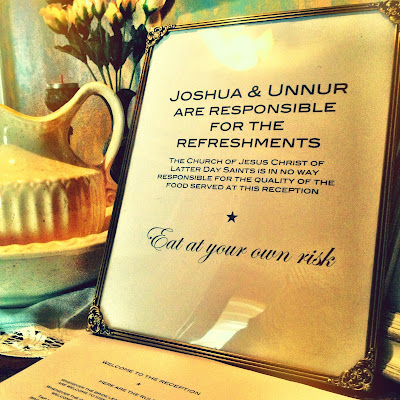 JOSHUA & UNNUR
ARE RESPONSIBLE
FOR THE
REFRESHMENTS
THE CHURCH OF JESUS CHRIST OF
LATTER DAY SAINTS IS IN NO WAY
RESPONSIBLE FOR THE QUALITY OF THE
FOOD SERVED AT THIS RECEPTION
Eat at your own risk
WELCOME TO THE RECEPTION
HERE ARE THE